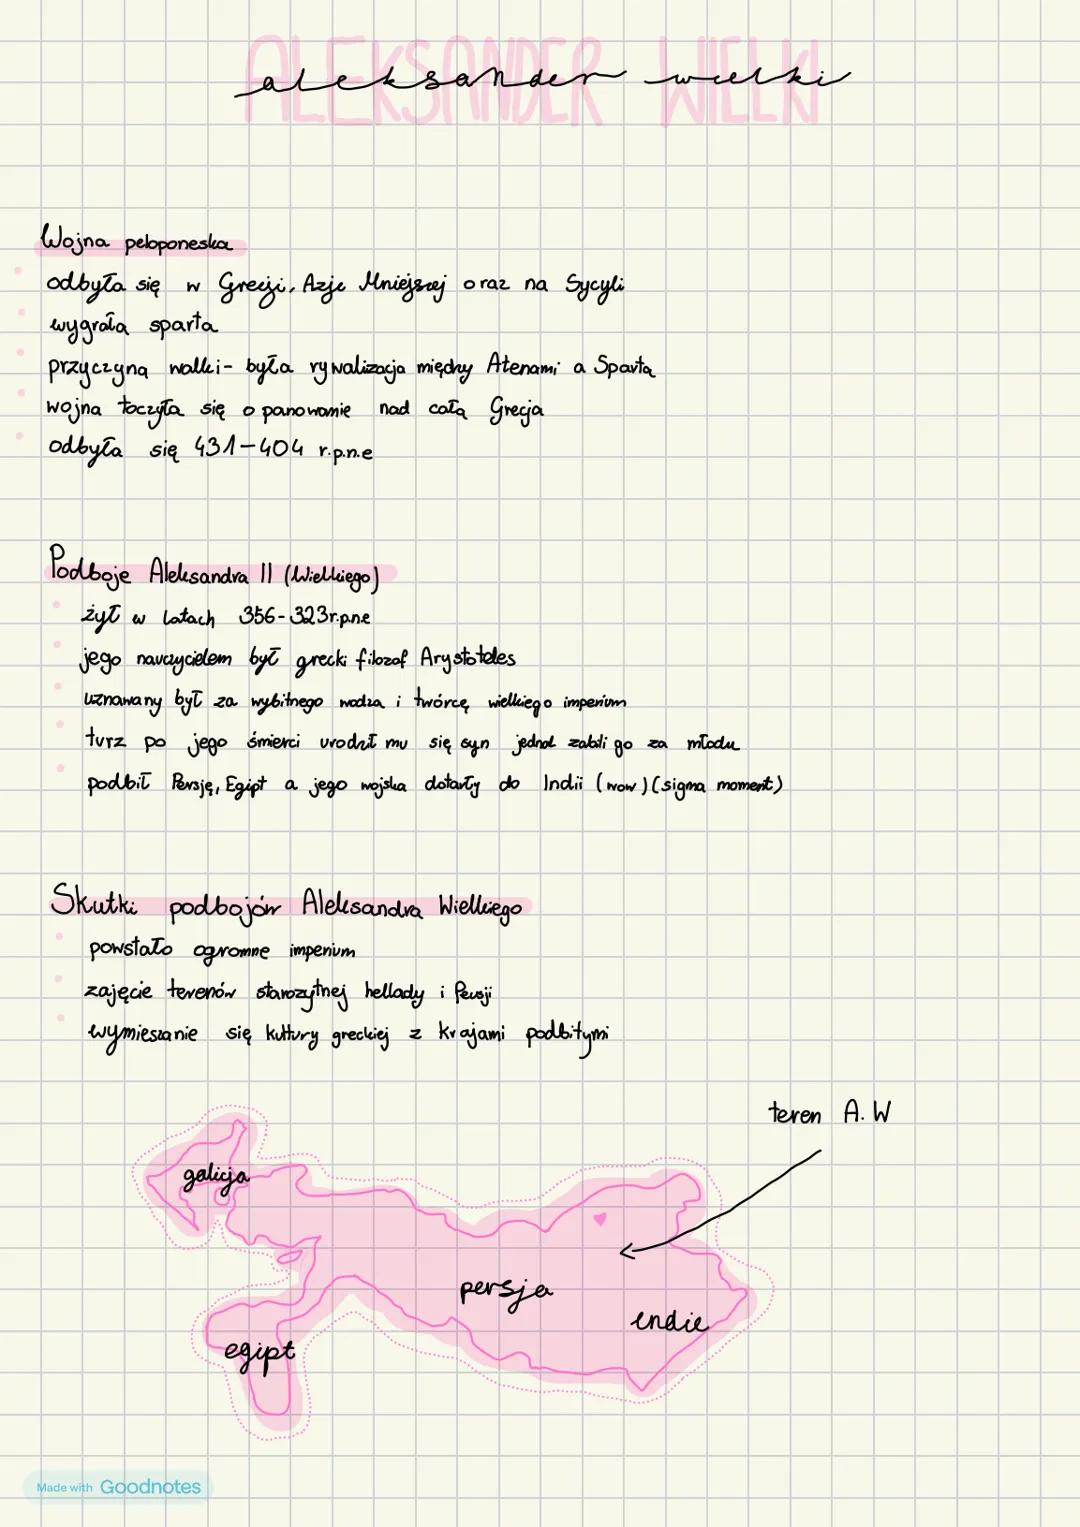 ALEKSANDER WIELKI
aleksander wielki
Wojna peloponeska
odbyła się w Grecji, Azje Mniejszej oraz na Sycyli
wygrała sparta
przyczyną walki- była rywalizacja między Atenami a Spartą
wojna toczyła się o panowanie nad całą Grecją
odbyła się 431-404 r.p.n.e
Podboje Aleksandra II (Wielkiego)
żył w latach 356-323r.p.n.e
jego nauczycielem był grecki filozof Arystoteles
uznawany był za wybitnego wodza i twórcę wielkiego imperium
turz po jego śmierci urodził mu się syn jednak zabili go za młodu
podbił Persję, Egipt a jego wojska dotarły do Indii (wow) (sigma moment)
Skutki podbojów Aleksandra Wielkiego
powstało ogromne imperium
zajęcie terenów starożytnej hellady i Persji
wymieszanie się kultury greckiej z krajami podbitymi
teren A.W
galicja
persja
indie
egipt
Made with Goodnotes